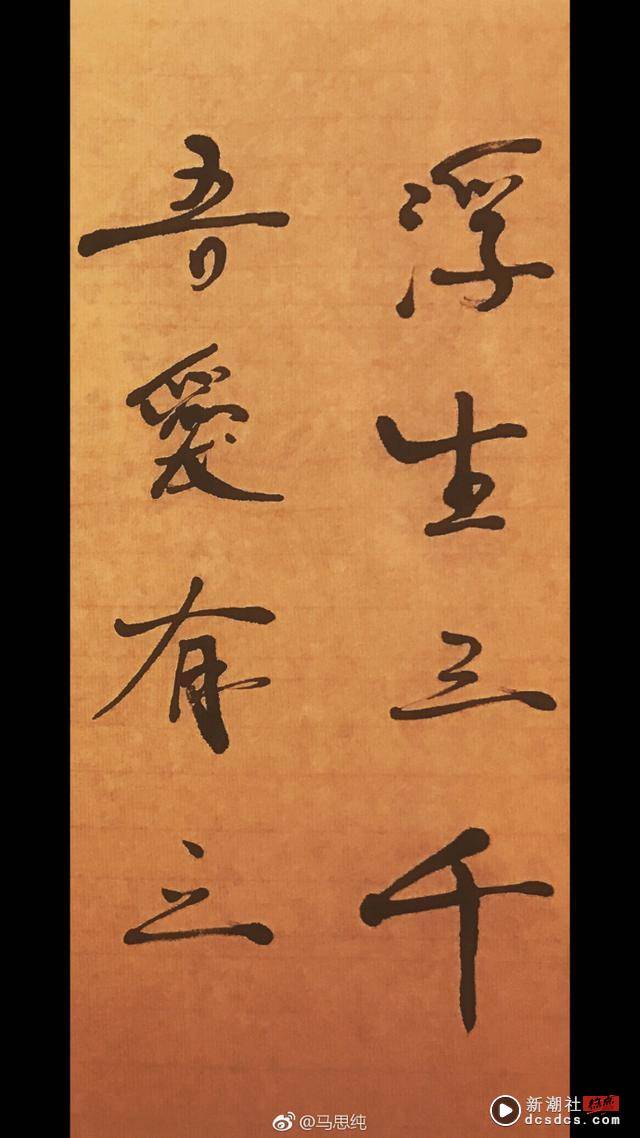 浮生三千
吾愛有三
@马思纯
新潮社
dcsdcs.com